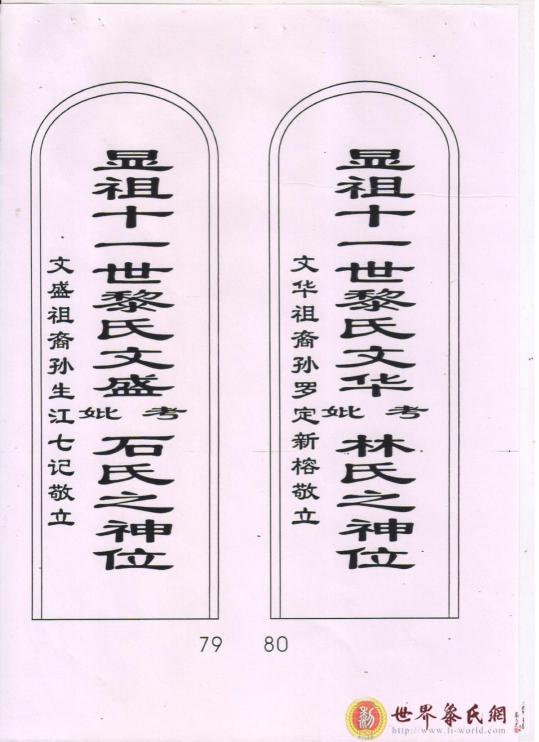 显祖十一世黎氏文华
考
妣
林氏之神位
文华祖裔孙罗定新榕敬立
80
显祖十一世黎氏文盛
考
妣
石氏之神位
文盛祖裔孙生江七记敬立
79
世界黎氏網
http://www.li-world.com